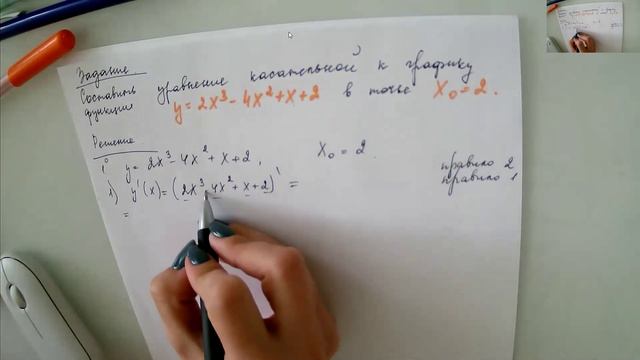 Задание.
Составить уравнение касательной к графику
функции y = 2x³ - 4x² + x + 2 в точке x₀ = 2.
Решение
y = 2x³ - 4x² + x + 2, x₀ = 2.
правило 2
1) y'(x) = (2x³ - 4x² + x + 2)' =
правило 1
=